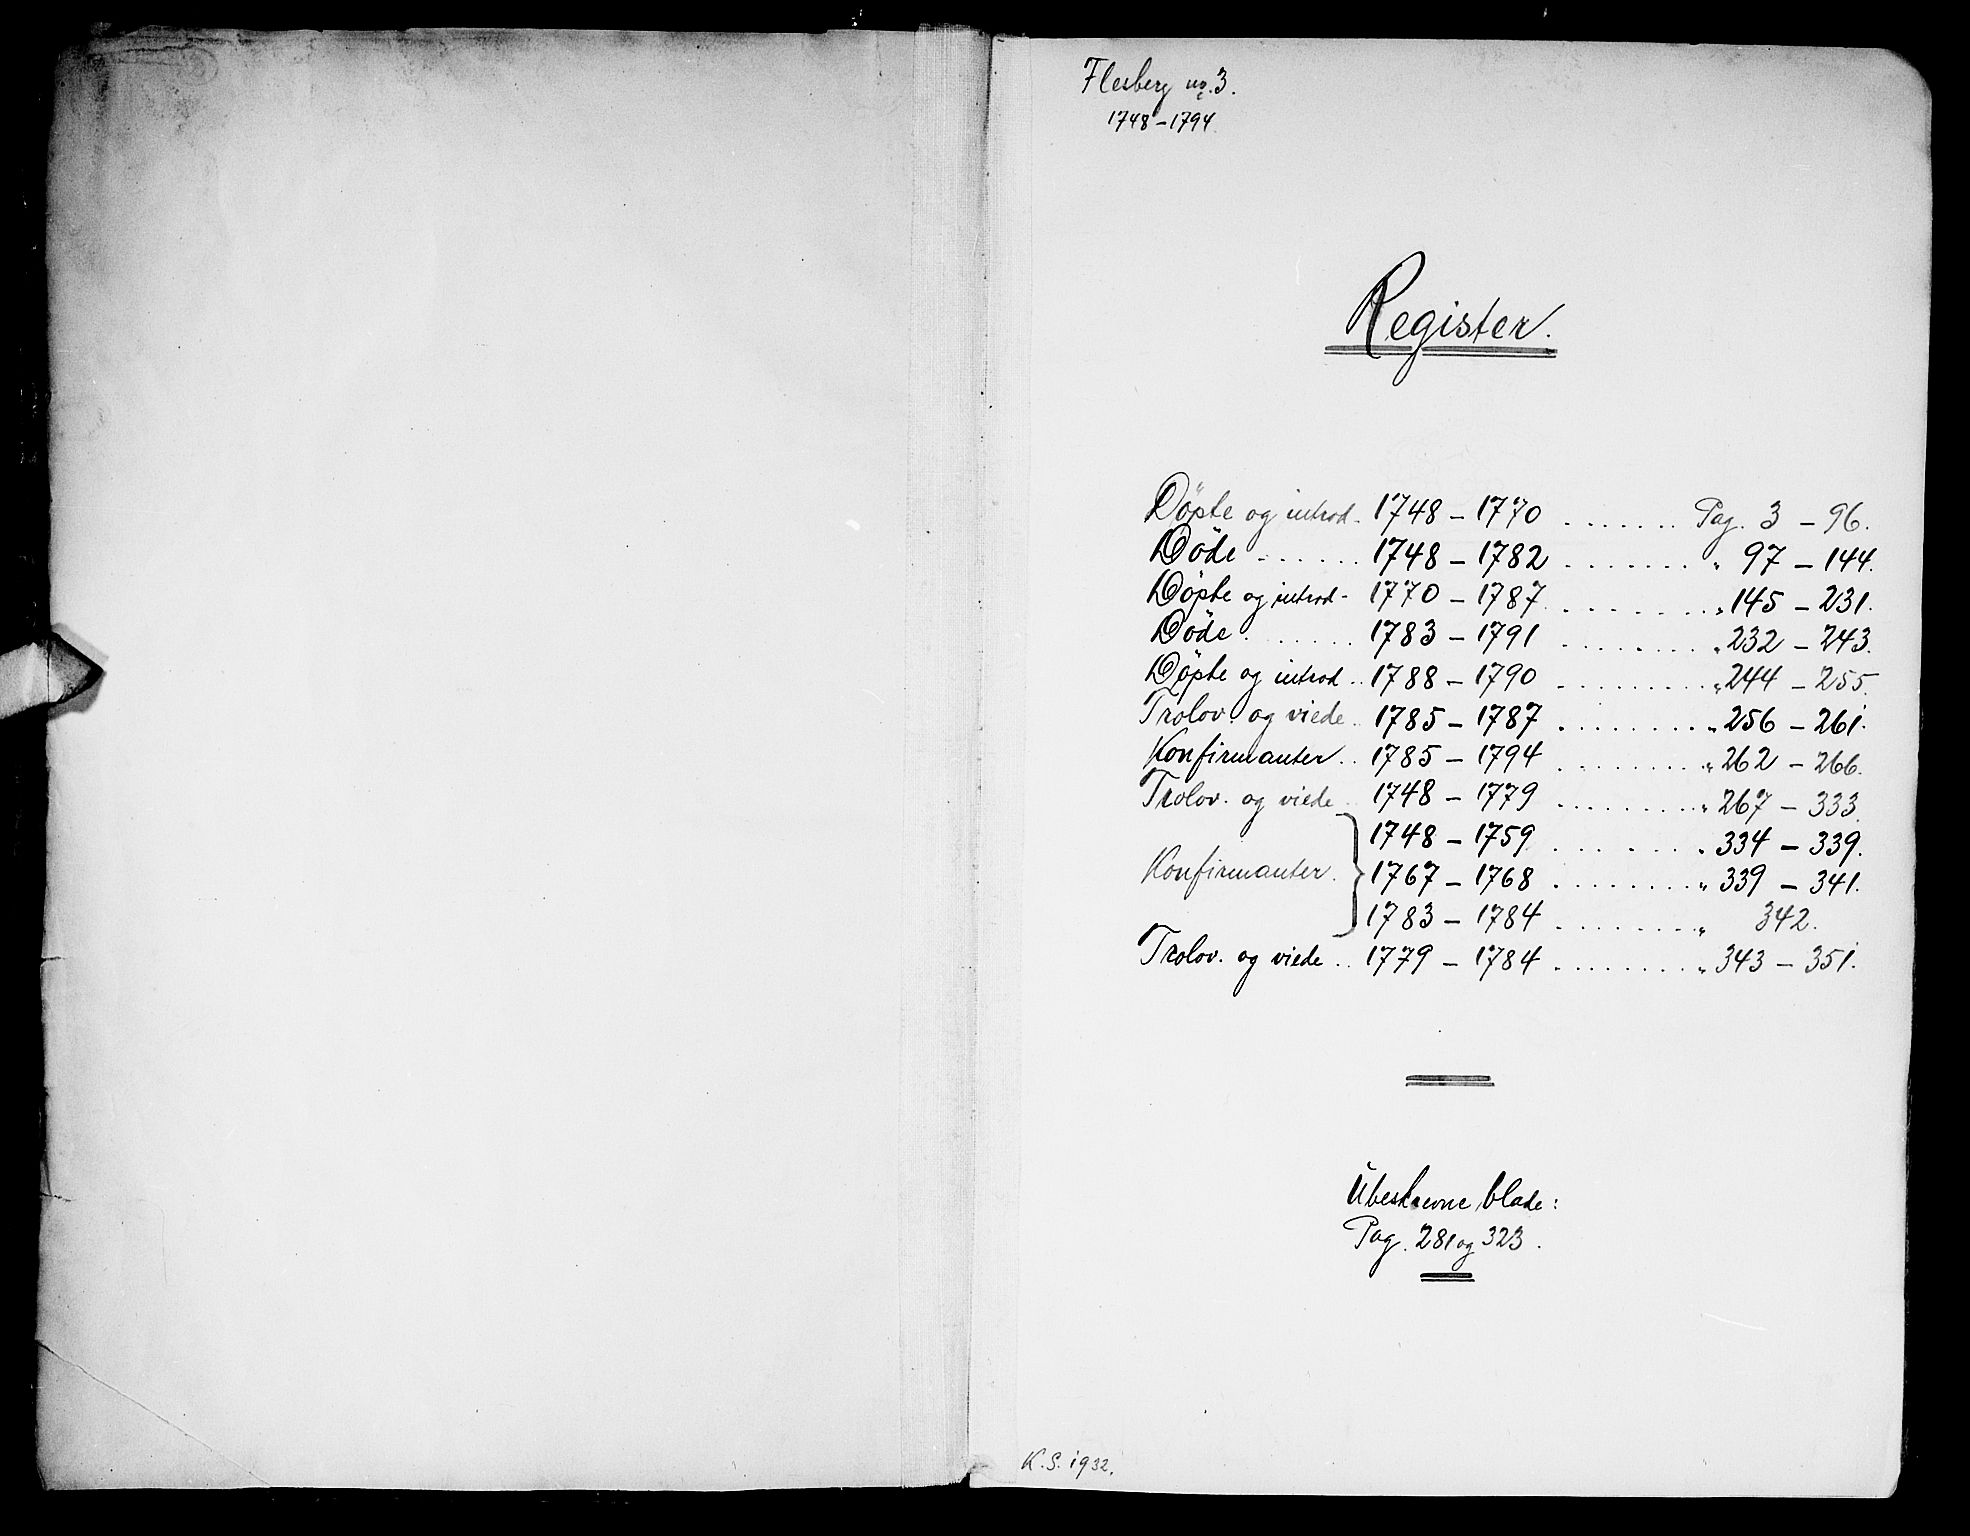 Flesberg nr. 3.
1748-1794.
Register.
Döpte og introd. 1748 - 1770 ....... Pag. 3 - 96.
Döde ...... 1748 - 1782 ....... " 97 - 144.
Döpte og introd - 1770 - 1787 ....... " 145 - 231.
Döde ...... 1783 - 1791 ....... " 232 - 243.
Döpte og introd .. 1788 - 1790 ....... " 244 - 255.
Trolov. og viede .. 1785 - 1787 ....... " 256 - 261.
Konfirmanter .. 1785 - 1794 ....... " 262 - 266.
Trolov. og viede .. 1748 - 1779 ....... " 267 - 333.
1748 - 1759 ....... " 334 - 339.
Konfirmanter. } 1767 - 1768 ....... " 339 - 341.
1783 - 1784 ....... " 342.
Trolov. og viede .. 1779 - 1784 ....... " 343 - 351.
Ubeskrevne blade:
Pag. 281 og 323.
K.S. 1932.